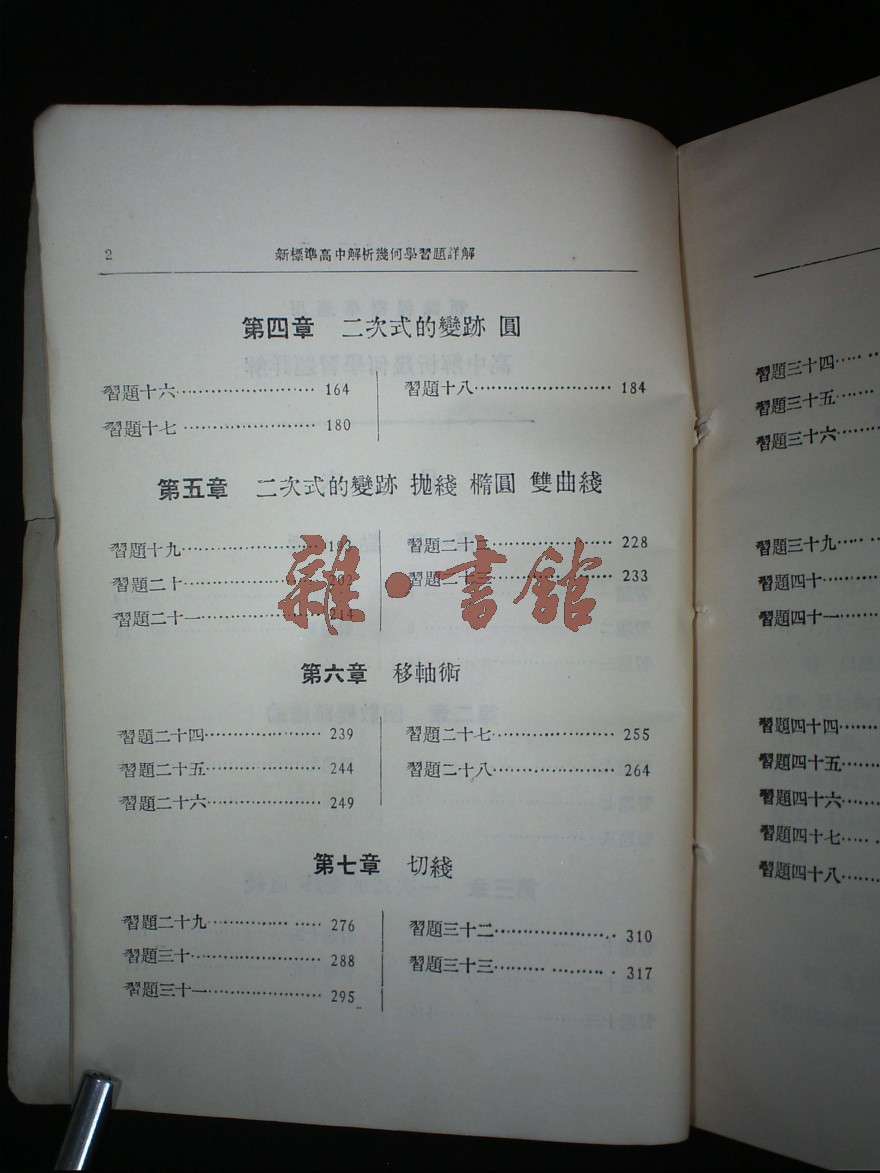 2
新標準高中解析幾何學習題詳解
第四章 二次式的變跡 圓
習題十六…………………… 164
習題十七…………………… 180
習題十八…………………… 184
第五章 二次式的變跡 抛綫 橢圓 雙曲綫
習題十九……………………
習題二十…………………… 202
習題二十一…………………… 214
習題二十二…………………… 228
習題二十三…………………… 233
雜·書館
第六章 移軸術
習題二十四…………………… 239
習題二十五…………………… 244
習題二十六…………………… 249
習題二十七…………………… 255
習題二十八…………………… 264
第七章 切綫
習題二十九…………………… 276
習題三十…………………… 288
習題三十一…………………… 295
習題三十二…………………… 310
習題三十三…………………… 317
習題三十四……
習題三十五……
習題三十六……
習題三十九……
習題四十……
習題四十一……
習題四十四……
習題四十五……
習題四十六……
習題四十七……
習題四十八……